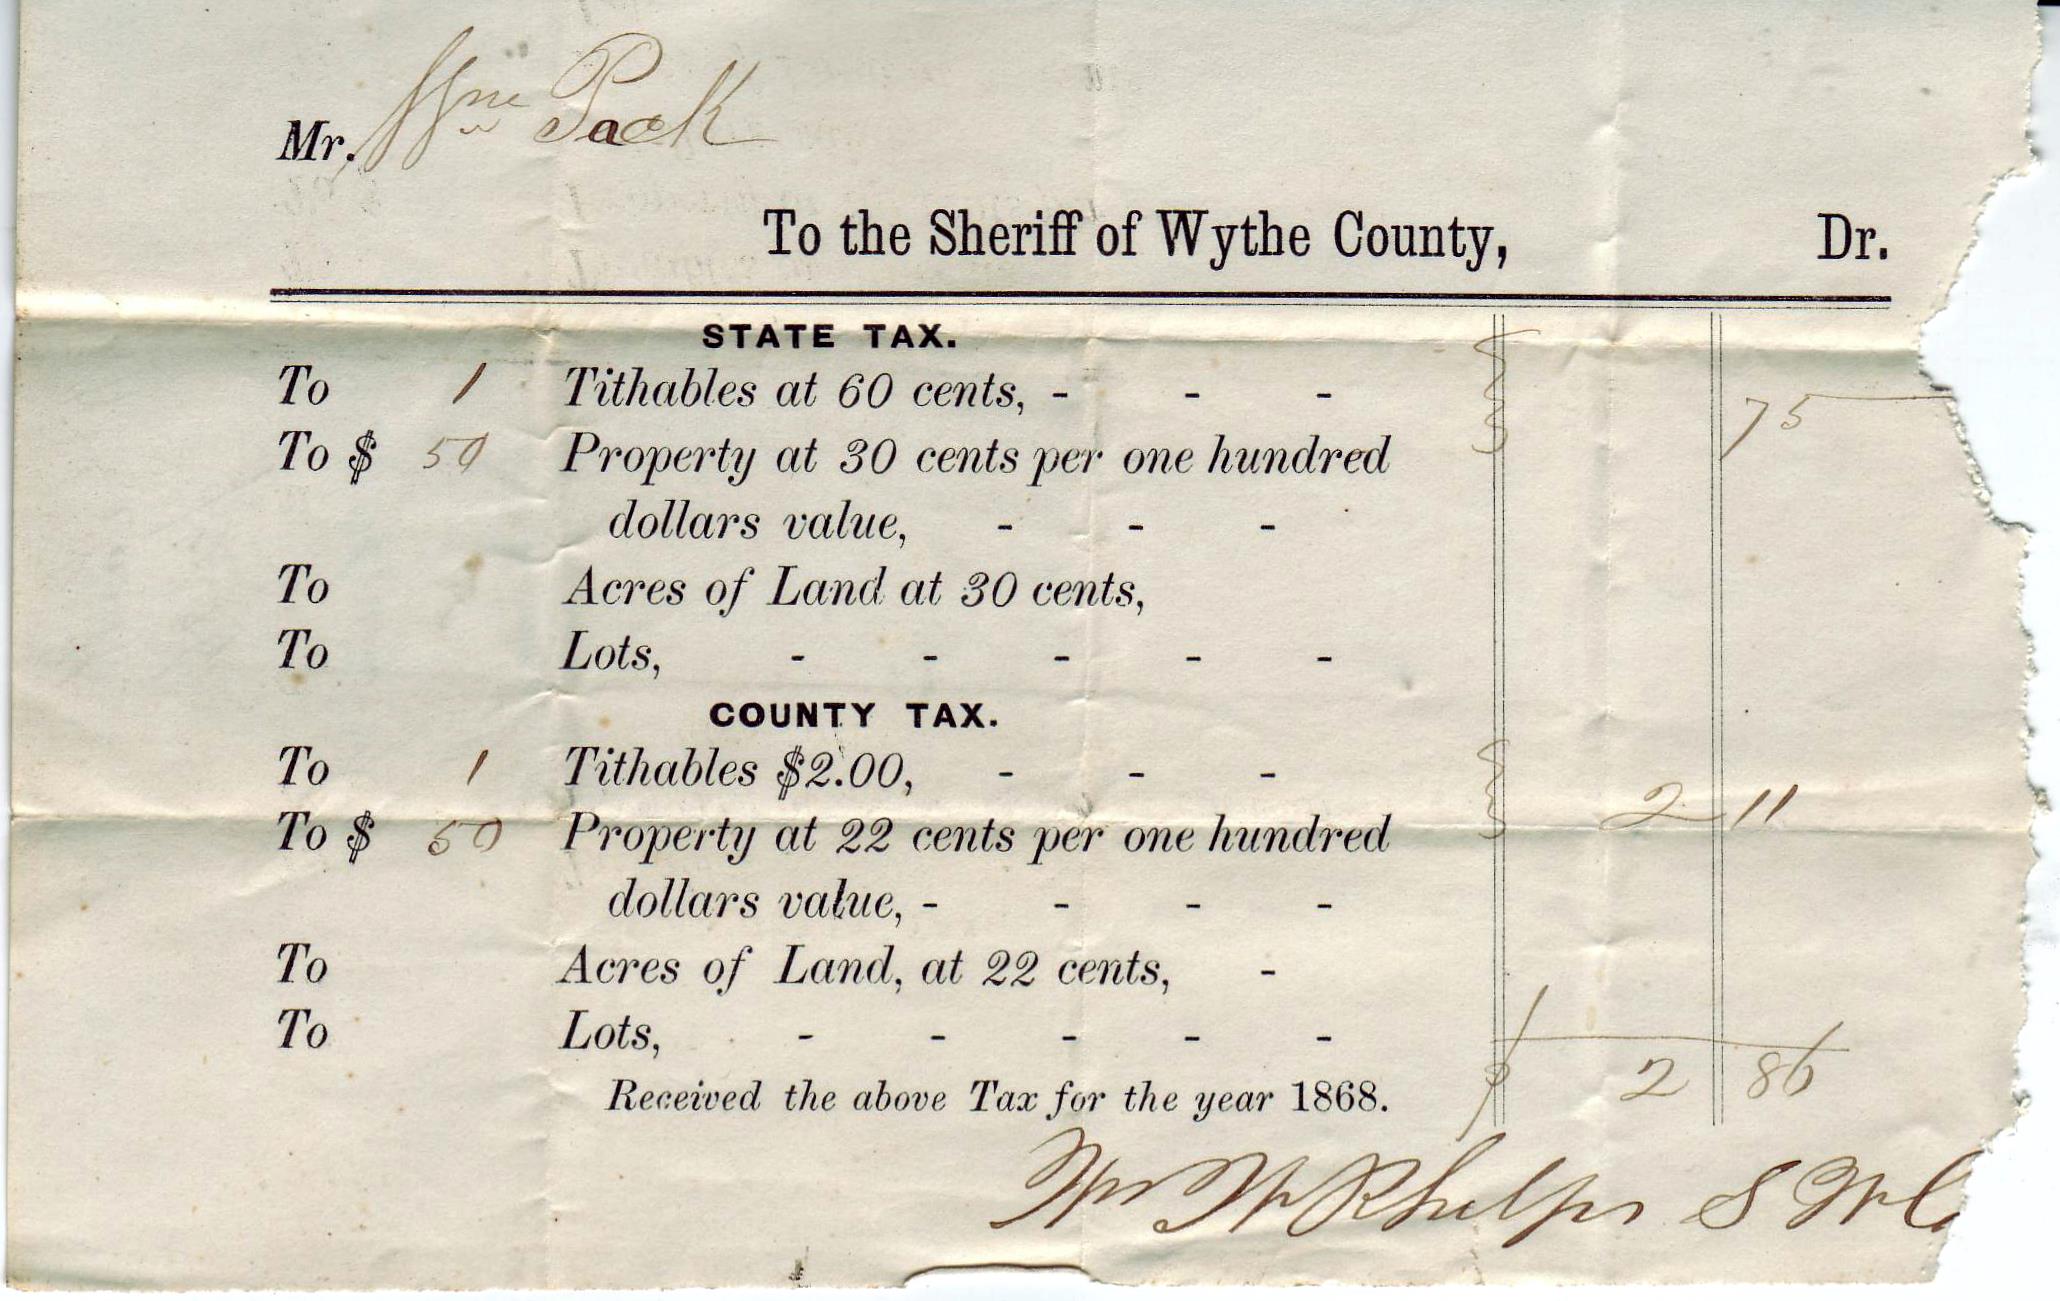 Mr. Wm Pack
To the Sheriff of Wythe County, Dr.
STATE TAX.
To 1 Tithables at 60 cents, - - -
To $ 50 Property at 30 cents per one hundred 75
dollars value, - - -
To Acres of Land at 30 cents,
To Lots, - - - - -
COUNTY TAX.
To 1 Tithables $2.00, - - -
To $ 50 Property at 22 cents per one hundred 2 11
dollars value, - - - -
To Acres of Land, at 22 cents, -
To Lots, - - - - -
Received the above Tax for the year 1868. $ 2 86
Wm W Phelps S W C